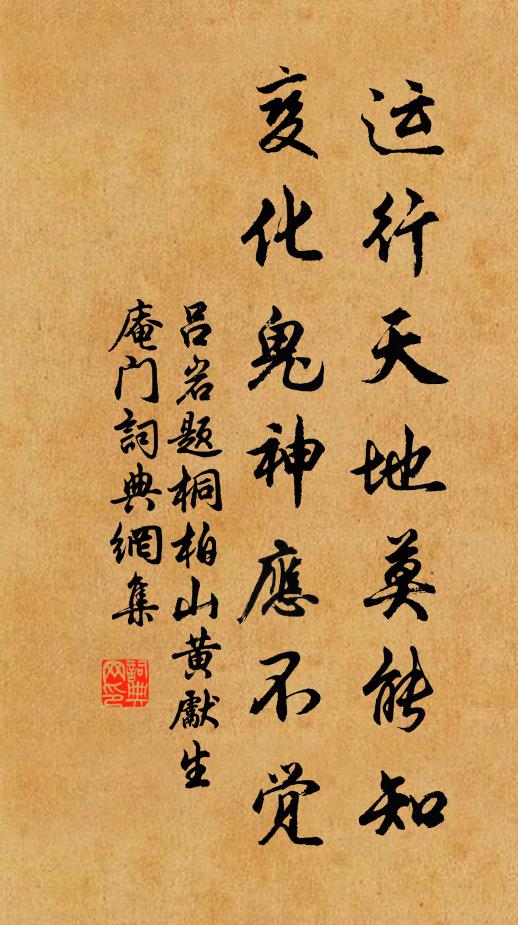 运行天地莫能知
变化鬼神應不觉
吕岩题桐柏山黄獻生
庵门詞典網集
詞典
网印